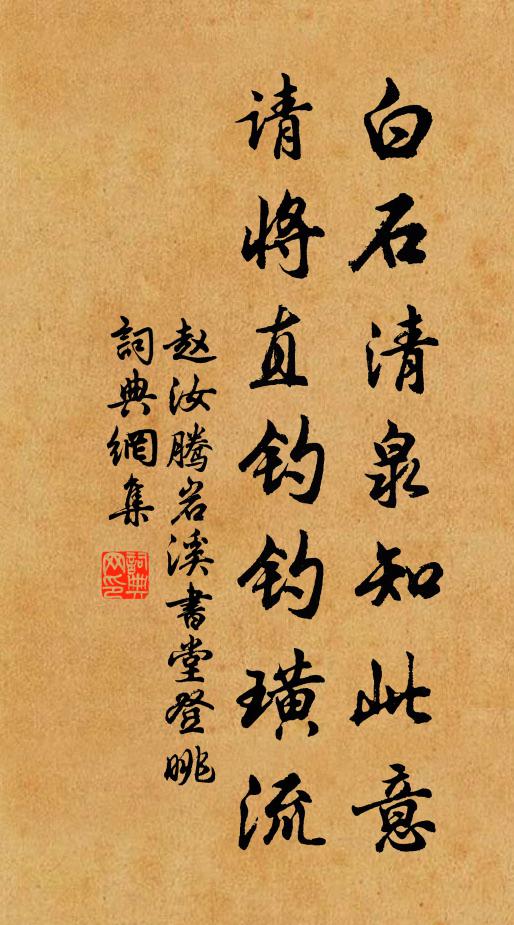 白石清泉知此意
请将直钓钓璜流
赵汝腾岩溪书堂登眺
詞典網集
詞典网印